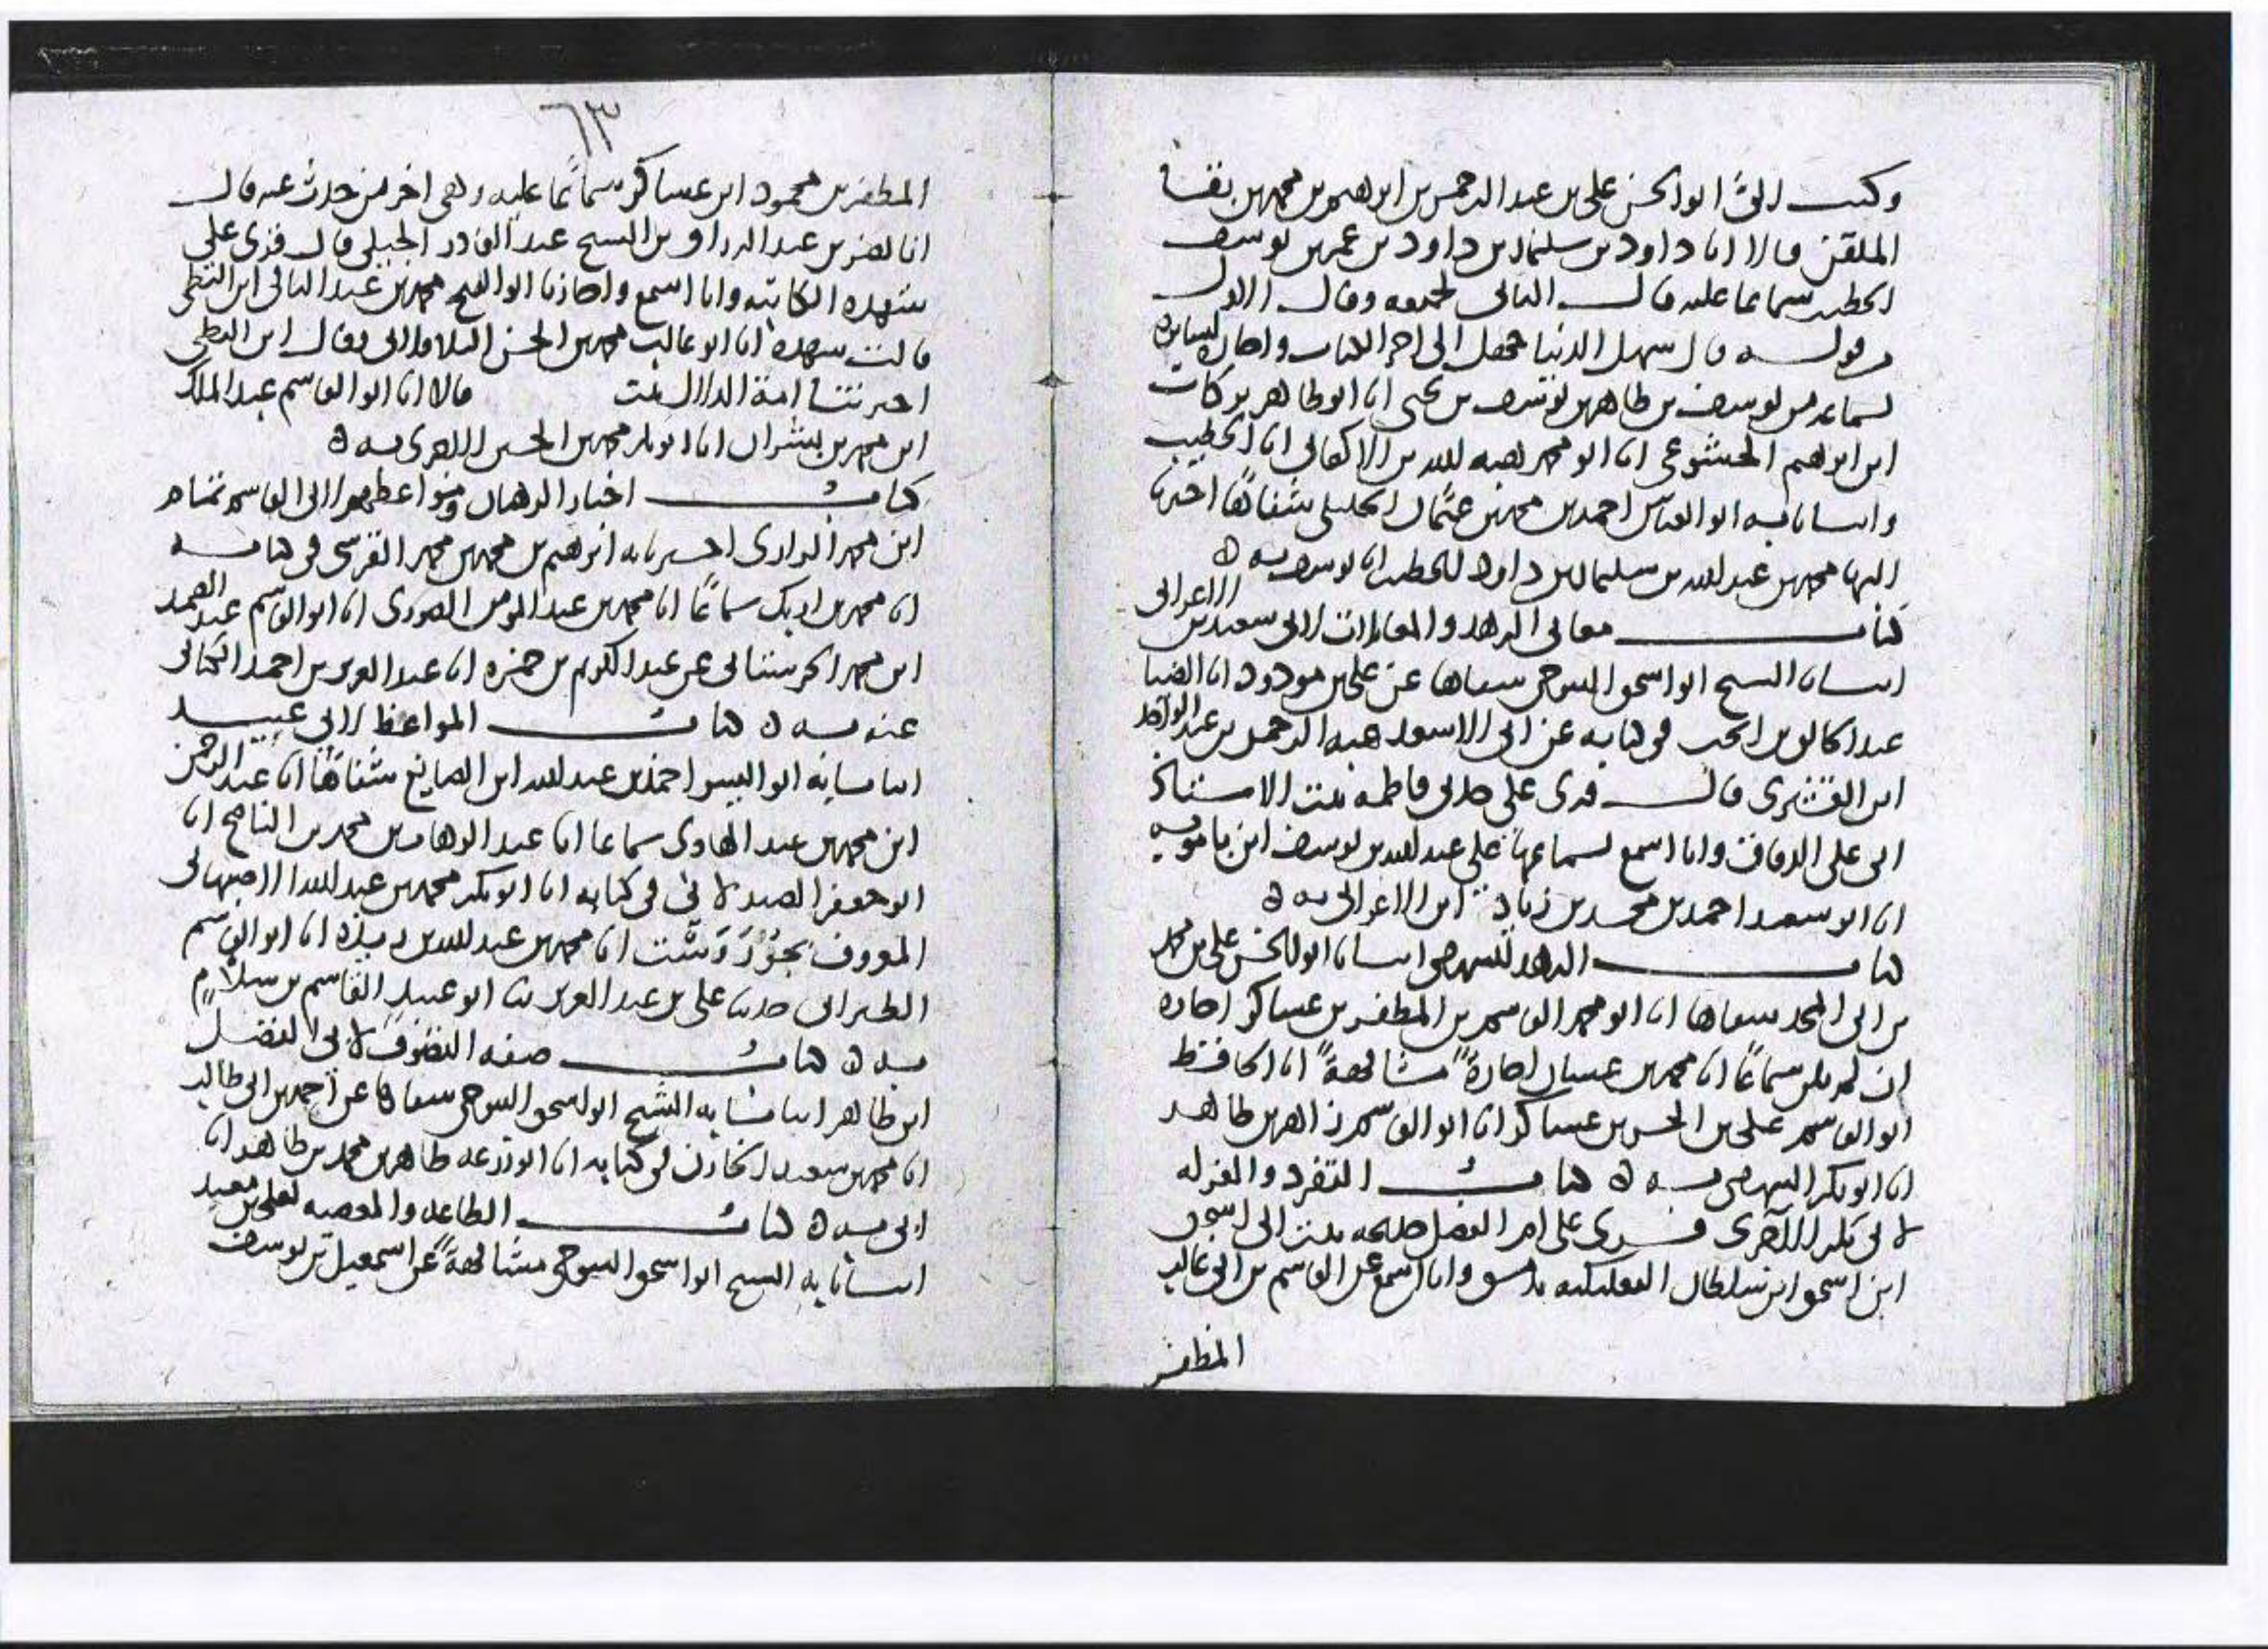 وكتب الى ابو الحسن على بن عبد الرحمن بن ابرهيم بن محمد بن
الملقن قالا انا داود بن سليمان بن داود بن عمر بن يوسف
الخطيب سماعا عليه قال الثانى لجميعه وقال الاول
قال سهل الدنيا الى اخر الكتاب واجازه لسايره
بسماعه من يوسف بن طاهر بن يوسف بن يحيى انا ابو طاهر بركات
ابن ابرهيم الخشوعى انا ابو محمد هبه الله بن الاكفانى انا الخطيب
وانبانا به ابو العباس احمد بن محمد بن عثمان الخليلى شفاها اخبرنا
محمد بن عبد الله بن سليمان بن داود الخطيب انا يوسف به ه
كتاب معانى الزهد والمقامات لابى سعيد بن الاعرابى
انبانا الشيخ ابو اسحق التنوخى شفاها عن على بن مودود انا الضيا
عبد الخالق بن انجب فى كتابه عن ابى الاسعد هبه الرحمن بن عبد الواحد
ابن القشيرى قال قرى على جدتى فاطمه بنت الاستاذ
ابى على الدقاق وانا اسمع بسماعها على عبد الله بن يوسف ابن بامويه
انا ابو سعيد احمد بن محمد بن زياد ابن الاعرابى به ه
كتاب الزهد للبيهقى انبانا ابو الحسن على بن محمد
بن ابى المجد شفاها انا ابو محمد القاسم بن المظفر بن عساكر اجازه
ان لم يكن سماعًا انا محمد بن غسان اجازةً مشافهةً انا الحافظ
ابو القاسم على بن الحسن بن عساكر انا ابو القاسم زاهر بن طاهر
انا ابو بكر البيهقى به ه كتاب التفرد والعزله
لابى بكر الآجرى قرى على ام الفضل خديجه بنت ابى اسحق
ابن اسحق ابن سلطان البعلبكيه بدمشق وانا اسمع عن القاسم بن ابى غالب
المظفر
٦٣
المظفر بن محمود ابن عساكر سماعًا عليه وهى اخر من حدث عنه قال
انا نصر بن عبد الرزاق بن الشيخ عبد القادر الجيلى قال قرى على
شهده الكاتبه وانا اسمع واجازنا ابو الفتح محمد بن عبد الباقى ابن البطى
قالت شهده انا ابو غالب محمد بن الحسن الباقلانى وقال ابن البطى
اخبرتنا امة الدلال بنت قالا انا ابو القاسم عبد الملك
ابن محمد بن بشران انا ابو بكر محمد بن الحسين الاجرى به ه
كتاب اخبار الرهبان ومواعظهم لابى القاسم تمام
ابن محمد الرازى اخبرنا به ابرهيم بن محمد بن محمد القرشى فى كتابه
انا محمد بن ازبك سماعًا انا محمد بن عبد المومن الصورى انا ابو القاسم عبد الصمد
ابن محمد الحرستانى عن عبد الكريم بن حمزه انا عبد العزيز بن احمد الكتانى
عنه به ه كتاب المواعظ لابى عبيد
انبانا به ابو اليسر احمد بن عبد الله ابن الصايغ شفاهًا انا عبد الرحمن
ابن محمد بن عبد الهادى سماعا انا عبد الوهاب بن محمد بن الناصح انا
ابو جعفر الصيدلانى فى كتابه انا ابو بكر محمد بن عبد الله الاصبهانى
المعروف بجوزدست انا محمد بن عبد الله بن ريذه انا ابو القاسم
الطبرانى حدثنا على بن عبد العزيز ثنا ابو عبيد القاسم بن سلام
به ه كتاب صفه التصوف لابى الفضل
ابن طاهر انبانا به الشيخ ابو اسحق التنوخى شفاها عن احمد بن ابى طالب
انا محمد بن سعيد الخازن فى كتابه انا ابو زرعه طاهر بن محمد بن طاهر انا
ابى به ه كتاب الطاعه والمعصيه لعلى بن معبد
انبانا به الشيخ ابو اسحق التنوخى مشافهةً عن اسمعيل بن يوسف